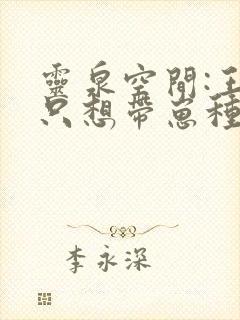 靈泉空間:王
只想帶崽種
李永深